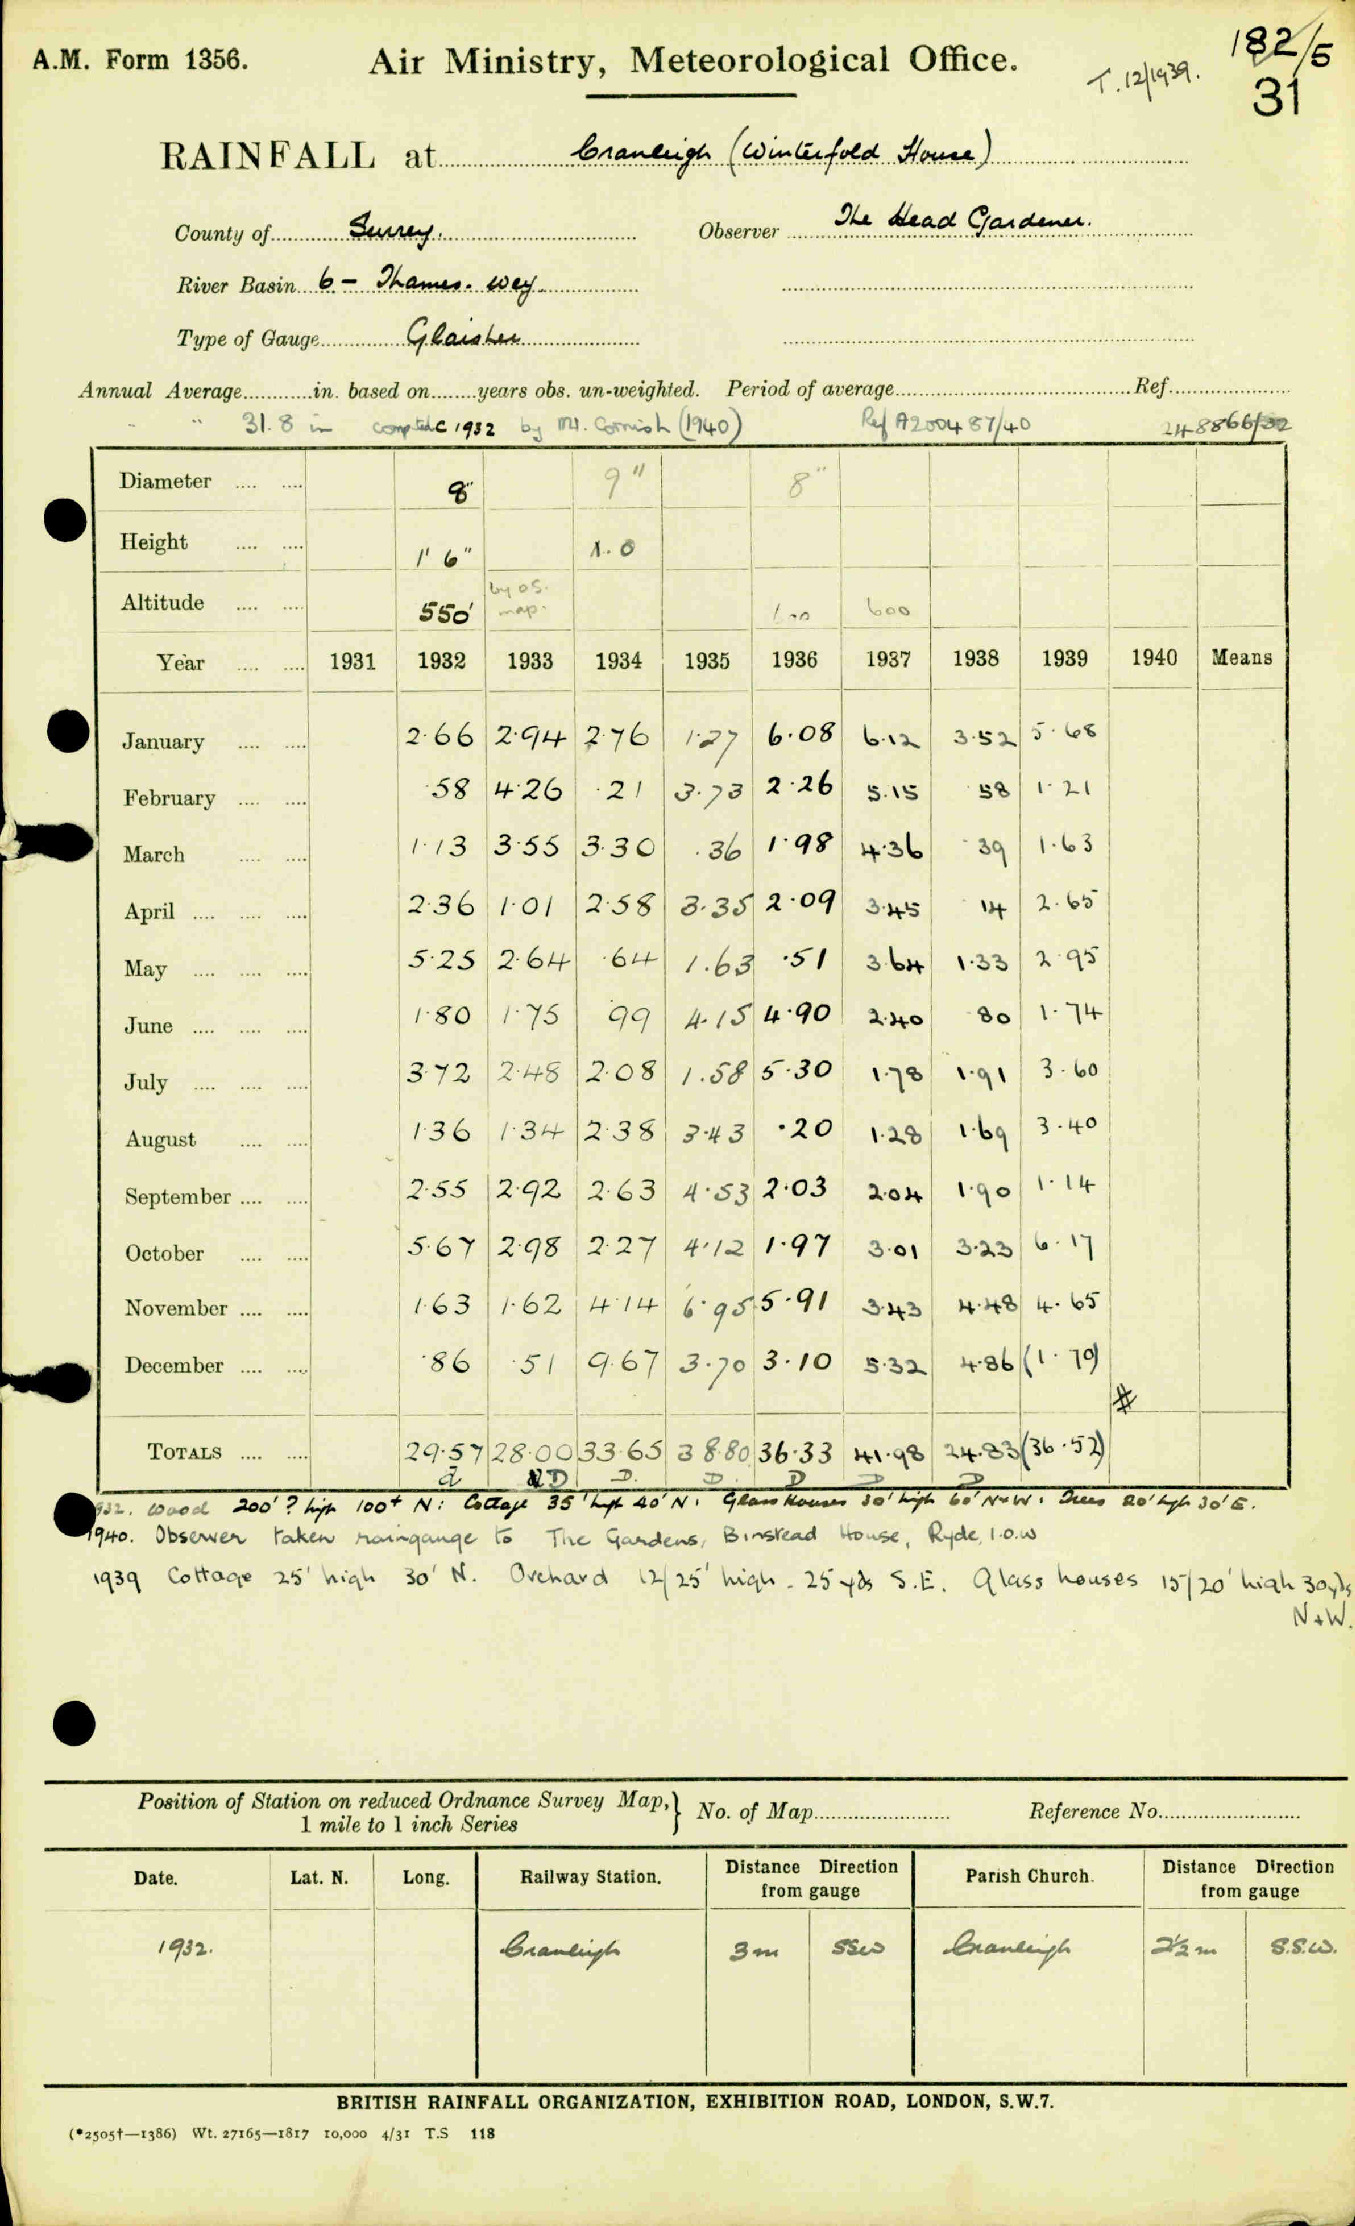 A.M. Form 1356.
Air Ministry, Meteorological Office.
T. 12/1939.
182/5
31
RAINFALL at Cranleigh (Winterfold House)
County of Surrey. Observer The Head Gardener.
River Basin 6 - Thames. Wey
Type of Gauge Glaisher
Annual Average in. based on years obs. un-weighted. Period of average Ref.
" " 31.8 in 1932 by Mr. Cornish (1940) Ref A200487/40 248866/32
Diameter 8" 9" 8"
Height 1' 6" 1.0
Altitude 550' by O.S. map. 600
Year 1931 1932 1933 1934 1935 1936 1937 1938 1939 1940 Means
January 2.66 2.94 2.76 1.27 6.08 6.12 3.52 5.68
February .58 4.26 .21 3.73 2.26 5.15 .58 1.21
March 1.13 3.55 3.30 .36 1.98 4.36 .39 1.63
April 2.36 1.01 2.58 3.35 2.09 3.45 .14 2.65
May 5.25 2.64 .64 1.63 .51 3.64 1.33 2.95
June 1.80 1.75 .99 4.15 4.90 2.40 .80 1.74
July 3.72 2.48 2.08 1.58 5.30 1.78 1.91 3.60
August 1.36 1.34 2.38 3.43 .20 1.28 1.69 3.40
September 2.55 2.92 2.63 4.53 2.03 2.04 1.90 1.14
October 5.67 2.98 2.27 4.12 1.97 3.01 3.23 6.17
November 1.63 1.62 4.14 6.95 5.91 3.43 4.48 4.65
December .86 .51 9.67 3.70 3.10 5.32 4.86 (1.70)
#
TOTALS 29.57 28.00 33.65 38.80 36.33 41.98 24.83 (36.52)
d D D. D. D D D
1932. Wood 200' ? high 100+ N: Cottage 35' high 40' N: Glass Houses 30' high 60' N+W: Trees 20' high 30' E.
1940. Observer taken raingauge to The Gardens, Binstead House, Ryde, I.O.W
1939 Cottage 25' high 30' N. Orchard 12/25' high - 25 yds S.E. Glass houses 15/20' high 30yds
N+W.
Position of Station on reduced Ordnance Survey Map, } No. of Map Reference No.
1 mile to 1 inch Series
Date. Lat. N. Long. Railway Station. Distance Direction from gauge Parish Church. Distance Direction from gauge
1932. Cranleigh 3m SSW Cranleigh 2½ m S.S.W.
BRITISH RAINFALL ORGANIZATION, EXHIBITION ROAD, LONDON, S.W.7.
(*2505†—1386) Wt. 27165—1817 10,000 4/31 T.S 118